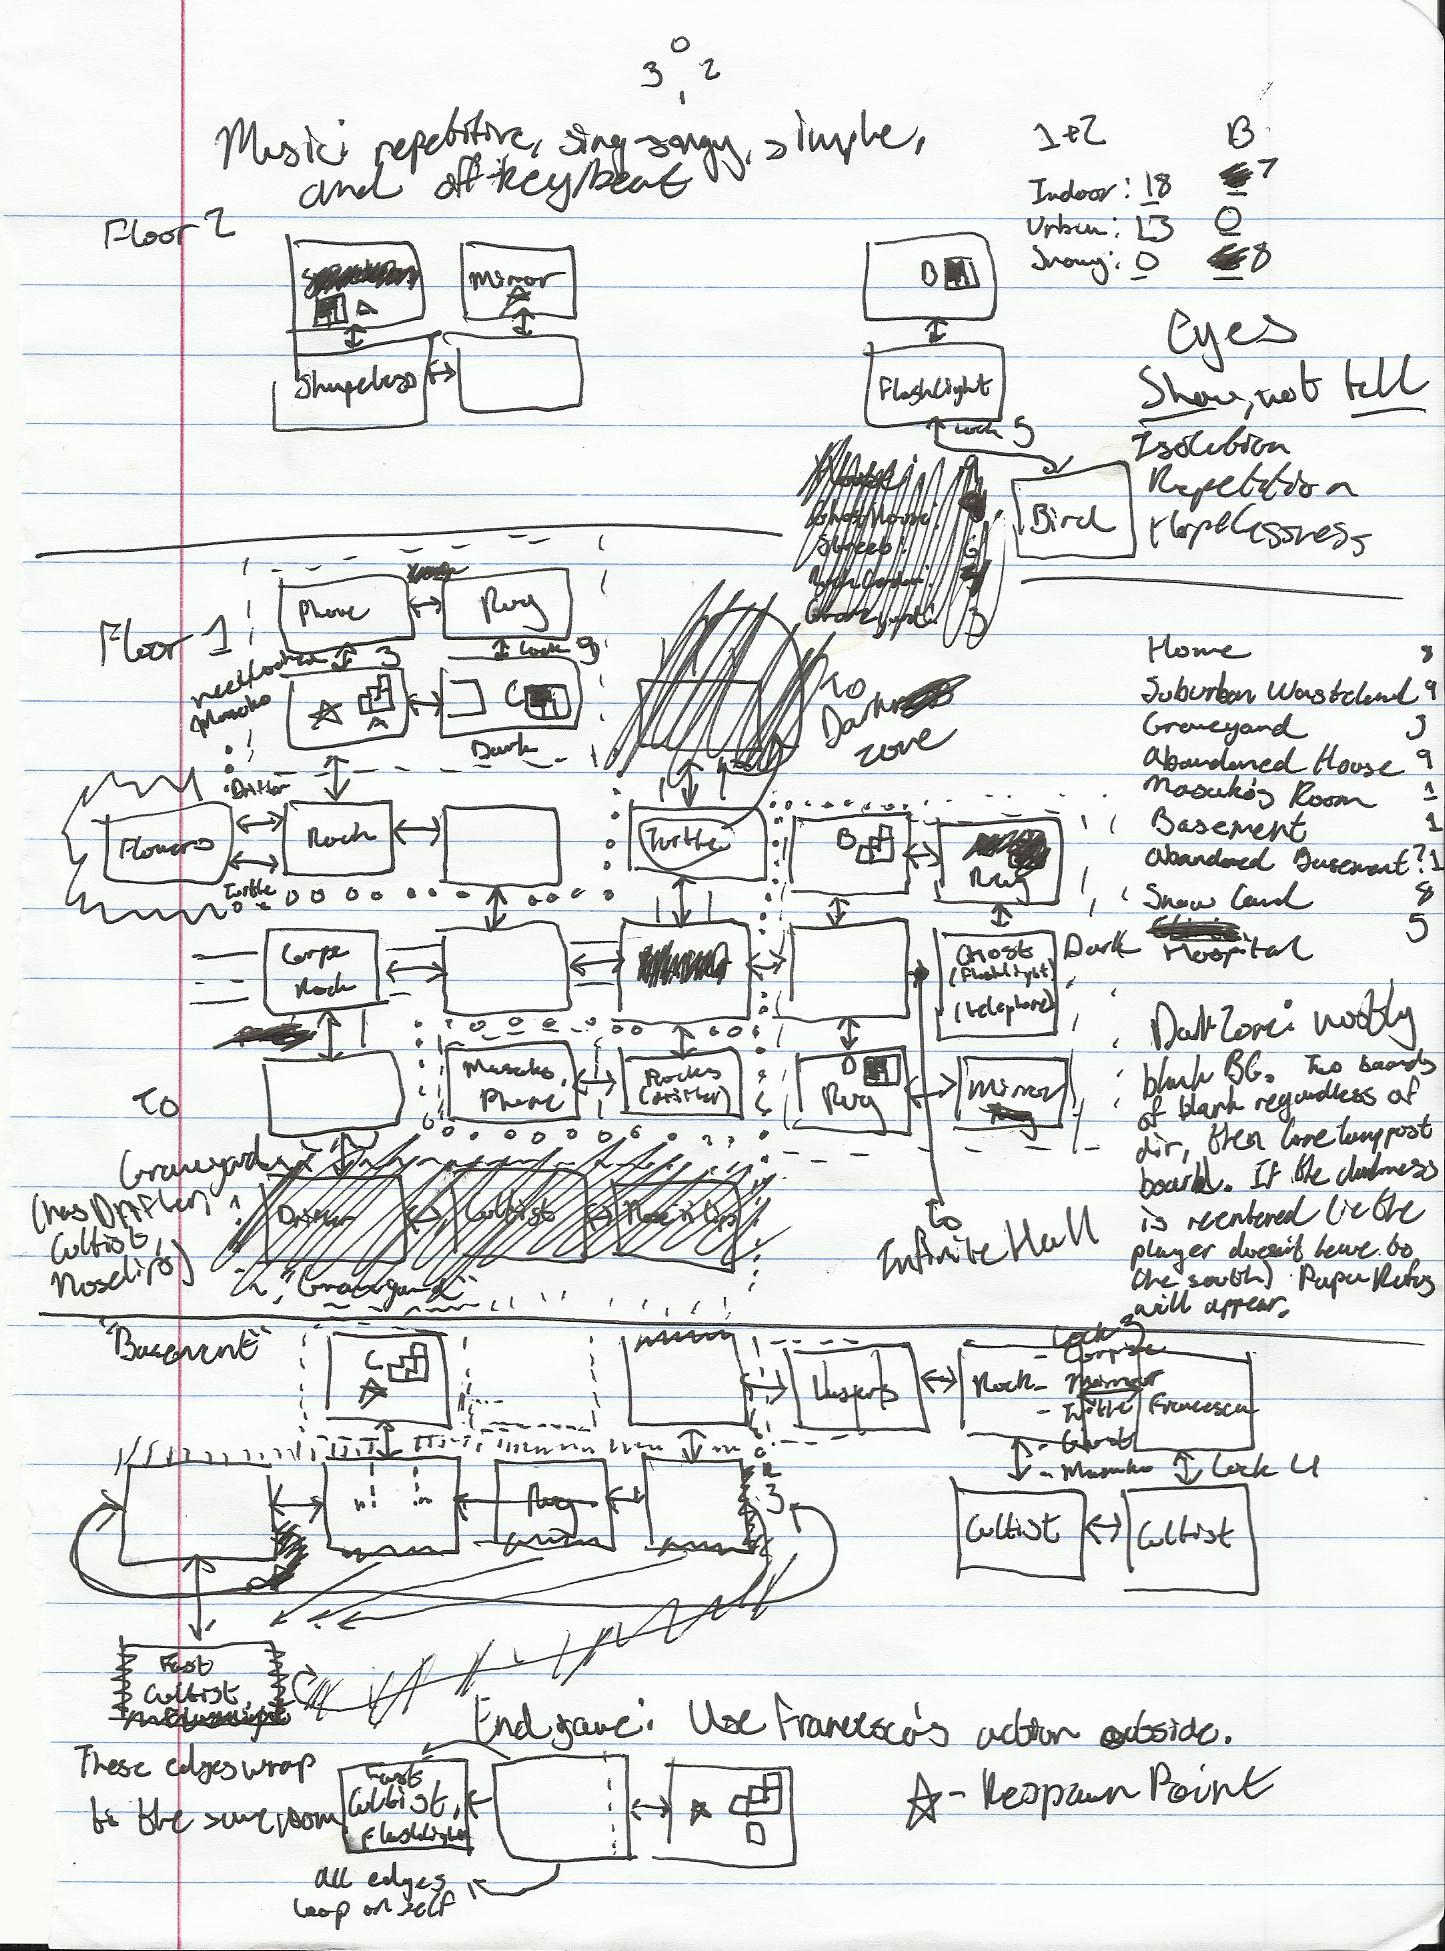 0
3 2
1
Music: repetitive, sing-songy, simple,
and off-key/beat
1+2 B
Indoor: 18 7
Urban: 13 0
Snowy: 0 8
Floor 2
A
Mirror
Shapeless
B
Flashlight
Lock 5
Bird
Eyes
Show, not tell
Isolation
Repetition
Hopelessness
Floor 1
Phone
Rug
3
Lock 9
need
Masako
A
C
Dark
To
Dark
zone
Drifter
Flowers
Rock
Turtle
Turtle
B
Rug
Corpse
Rock
Ghost
(Flashlight)
(telephone)
Dark
Masako,
Phone
Rocks
(Drifter)
D
Rug
Mirror
To
Graveyard
(has Drifter,
Cultist,
Noselips)
Drifter
Cultist
"Graveyard"
to
Infinite Hall
Home 8
Suburban Wasteland 9
Graveyard 3
Abandoned House 9
Masako's Room 1
Basement 1
Abandoned Basement? 1
Snow Land 8
Hospital 5
Dark Zone: 
blank BG. Two boards
of blank regardless of
dir, then lone lamppost
board. If the darkness
is reentered (ie the
player doesn't leave to
the south) Paper
will appear.
"Basement"
C
Users
Rock
Lock 3
- Corpse
- Mirror
- Turtle
- Ghost
- Masako
Francesca
Lock 4
Cultist
Cultist
Rug
3
Fast
Cultist,
These edges wrap
to the same room
Endgame: Use Francesca's action outside.
Fast
Cultist,
Flashlight
D
All edges
loop on self
- Respawn Point